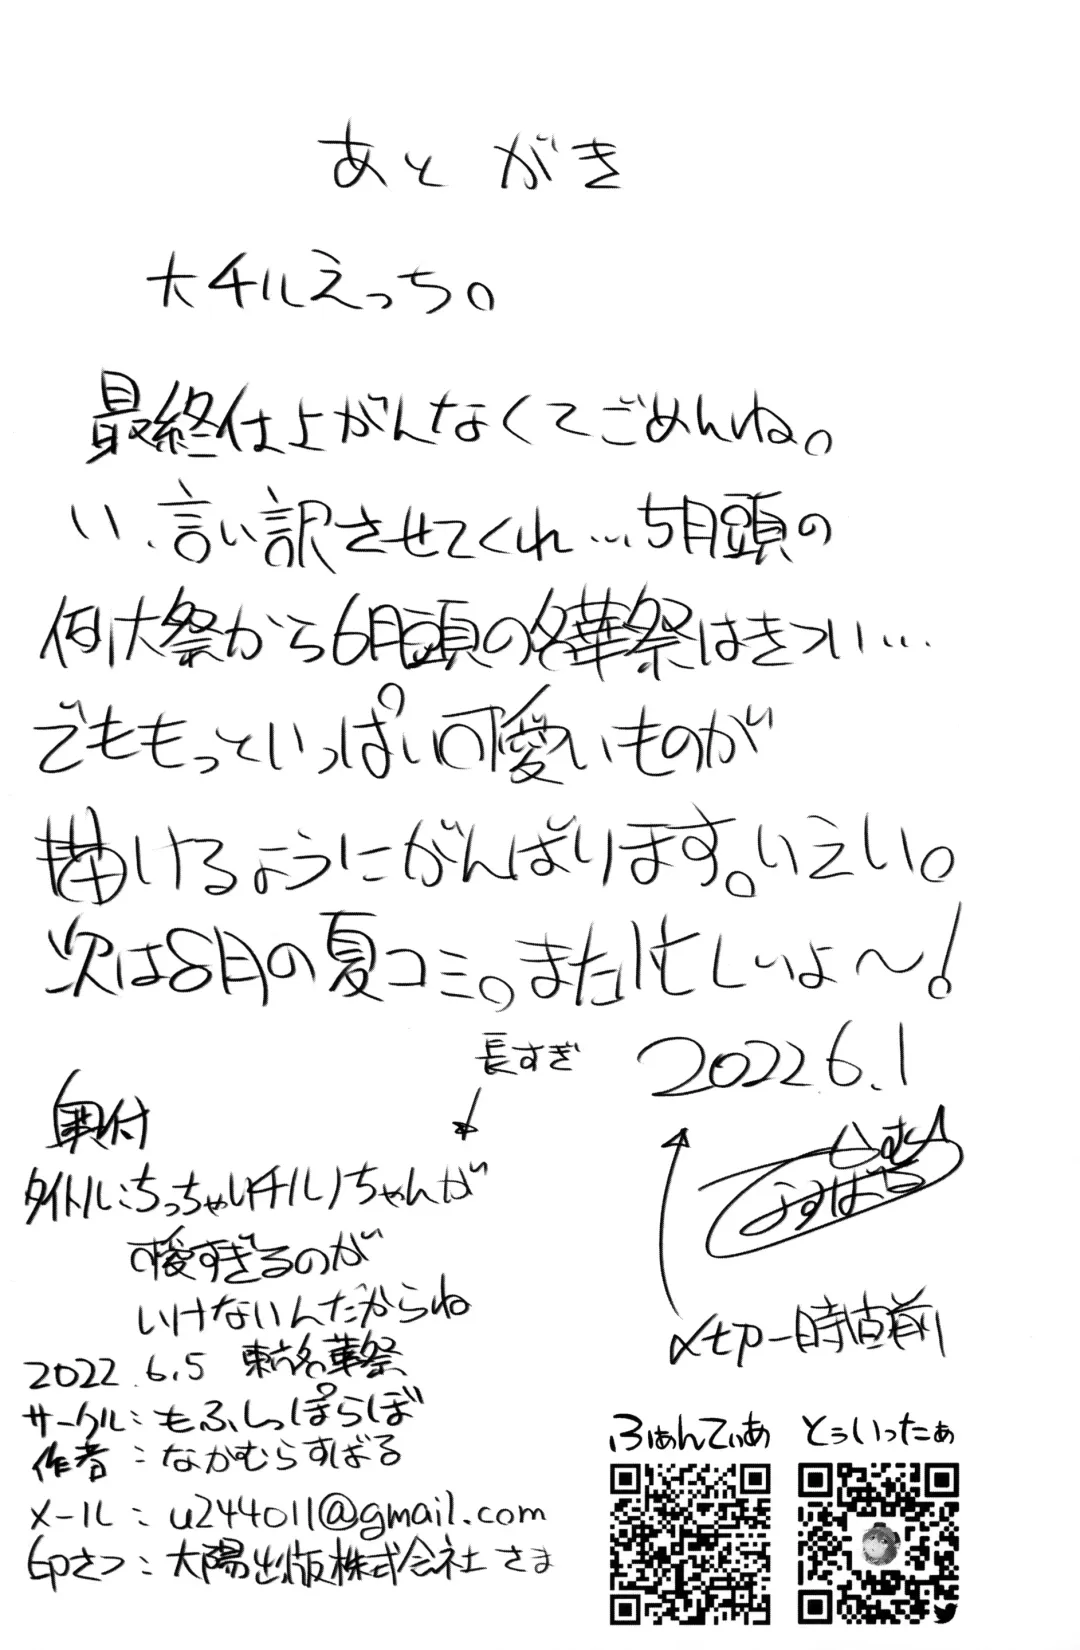 あとがき
大チルえっち。
最終仕上がんなくてごめんね。
い、言い訳させてくれ…5月頭の
例大祭から6月頭の名華祭はきつい…
でももっといっぱい可愛いものが
描けるようにがんばります。いえい。
次は8月の夏コミ。また忙しいよ〜!
長すぎ
2022.6.1
奥付
タイトル:ちっちゃいチルノちゃんが
可愛すぎるのが
いけないんだからね
2022.6.5 東方名華祭
サークル:もふしっぽらぼ
作者:なかむらすばる
メール:u244011@gmail.com
印さつ:大陽出版株式会社さま
〆切一時直前
ふぁんてぃあ
とぅいったぁ